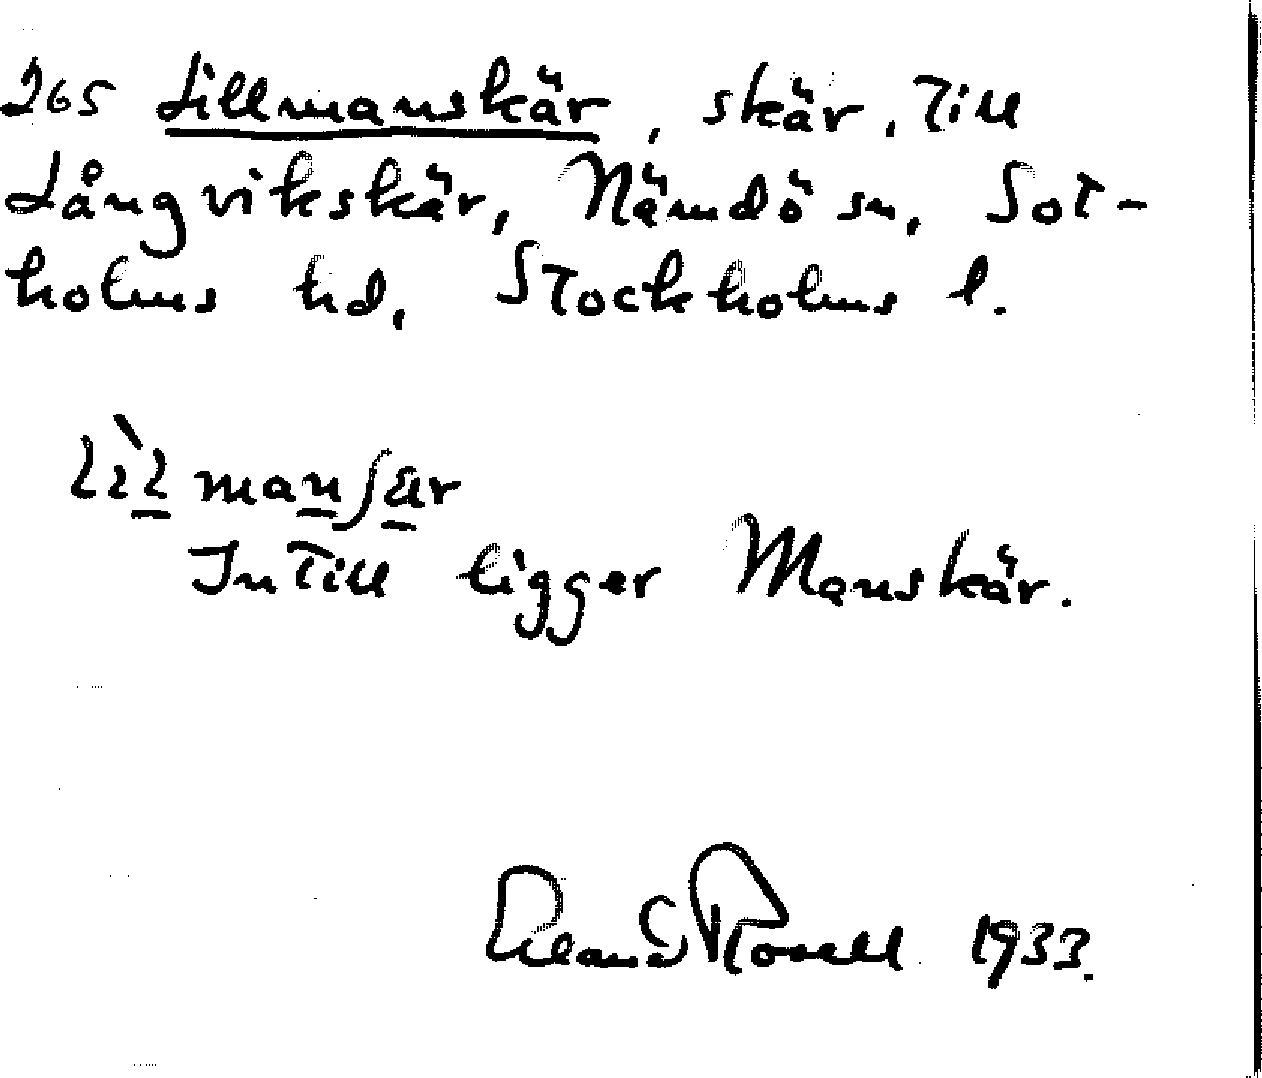 265 Lillmanskär, skär, till
Långvikskär, Nämdö sn, Sot-
holms hd, Stockholms l.
lìlmanʃär
Intill ligger Manskär.
1933.